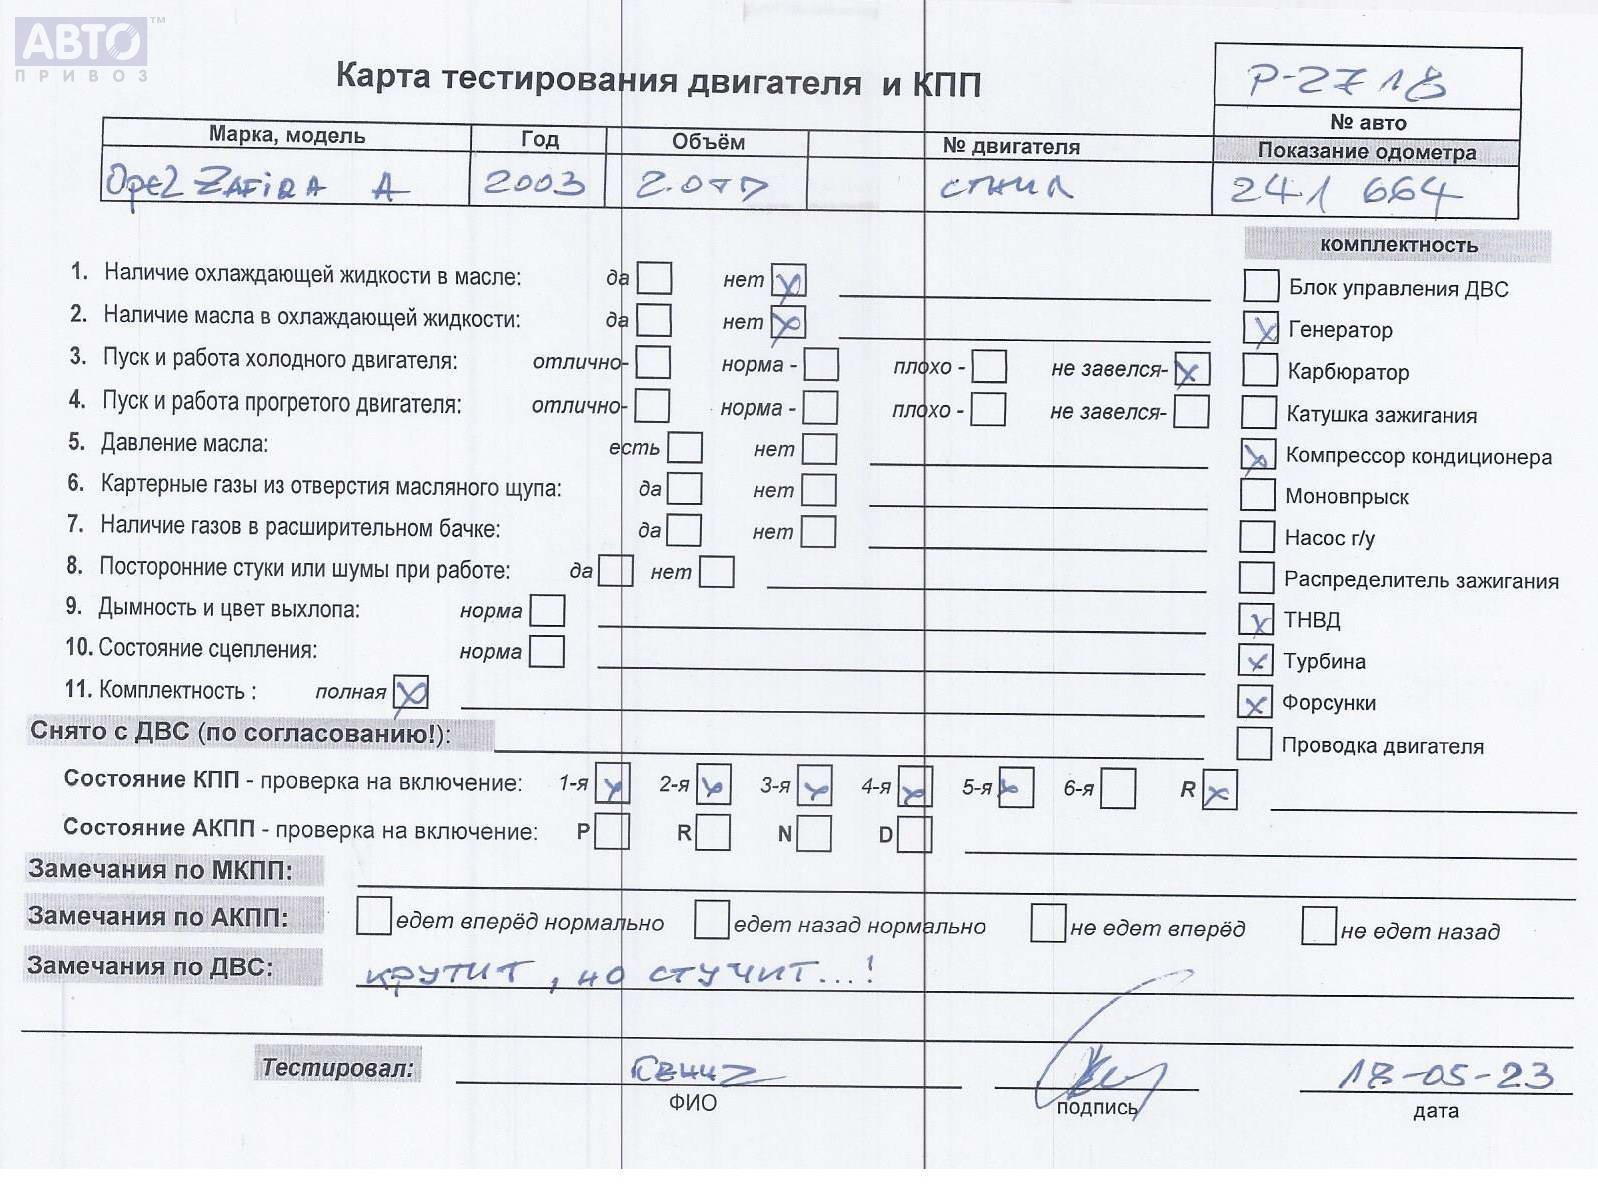 АВТО™
ПРИВОЗ
Карта тестирования двигателя и КПП
P-2718
№ авто
Марка, модель Год Объём № двигателя Показание одометра
Opel ZAFiRA A 2003 2.0TD сгнил 241 664
комплектность
1. Наличие охлаждающей жидкости в масле: да нет x
Блок управления ДВС
2. Наличие масла в охлаждающей жидкости: да нет x
x Генератор
3. Пуск и работа холодного двигателя: отлично- норма - плохо - не завелся- x
Карбюратор
4. Пуск и работа прогретого двигателя: отлично- норма - плохо - не завелся-
Катушка зажигания
5. Давление масла: есть нет
x Компрессор кондиционера
6. Картерные газы из отверстия масляного щупа: да нет
Моновпрыск
7. Наличие газов в расширительном бачке: да нет
Насос г/у
8. Посторонние стуки или шумы при работе: да нет
Распределитель зажигания
9. Дымность и цвет выхлопа: норма
x ТНВД
10. Состояние сцепления: норма
x Турбина
11. Комплектность : полная x
x Форсунки
Снято с ДВС (по согласованию!):
Проводка двигателя
Состояние КПП - проверка на включение: 1-я x 2-я x 3-я x 4-я x 5-я x 6-я R x
Состояние АКПП - проверка на включение: P R N D
Замечания по МКПП:
Замечания по АКПП: едет вперёд нормально едет назад нормально не едет вперёд не едет назад
Замечания по ДВС: крутит, но стучит...!
Тестировал: 18-05-23
ФИО подпись дата